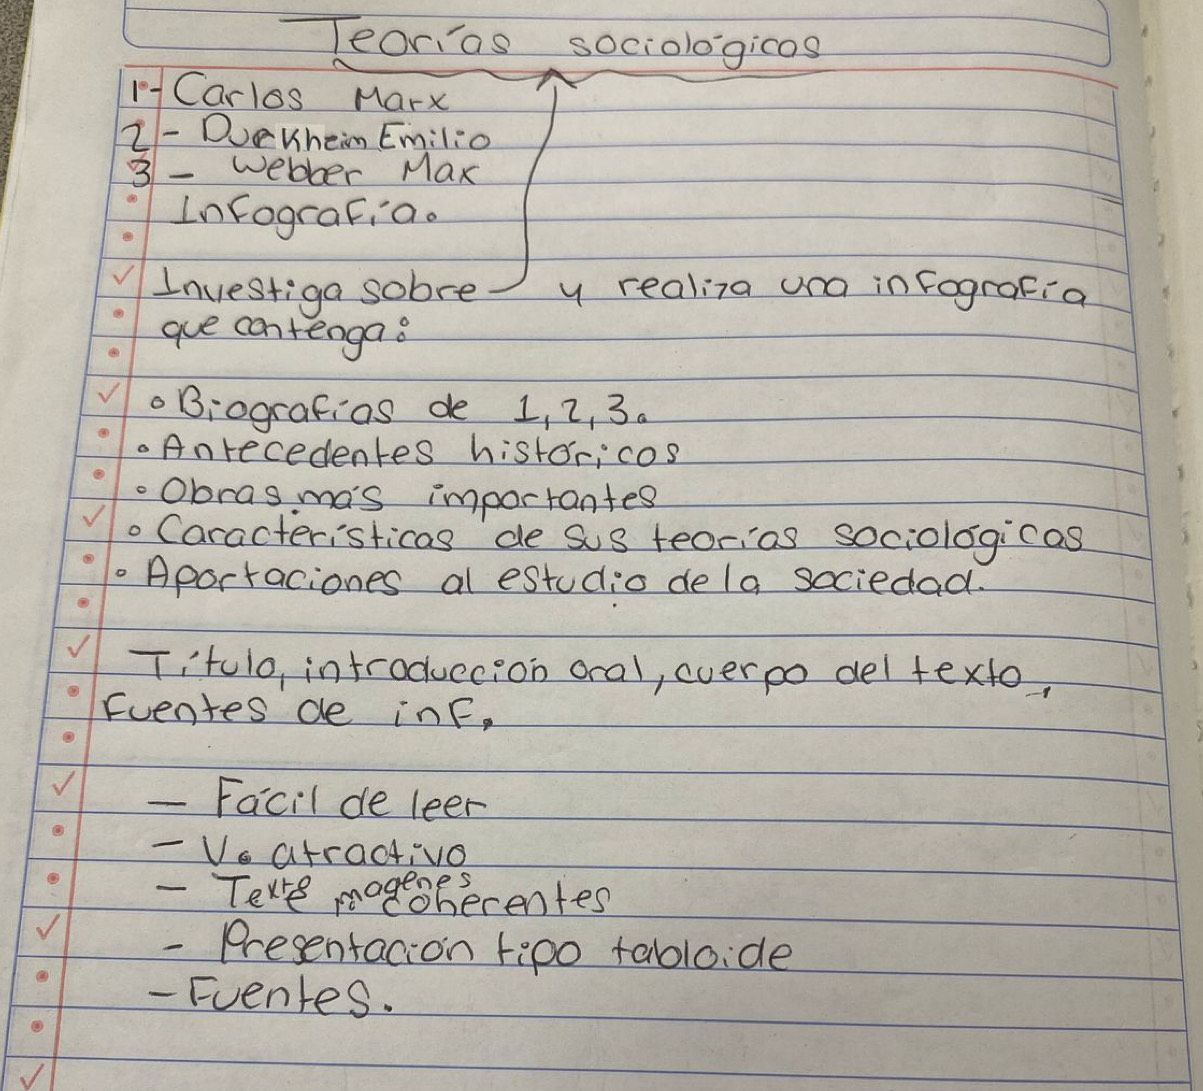 Teorías sociológicas
1- Carlos Marx
2- Duekheim Emilio
3 - Webber Max
Infografía.
Investiga sobre y realiza una infografía
que contenga:
• Biografías de 1, 2, 3.
• Antecedentes históricos
• Obras más importantes
• Características de sus teorías sociológicas
• Aportaciones al estudio de la sociedad.
Título, introducción oral, cuerpo del texto,
Fuentes de inf.
- Fácil de leer
- V. atractivo
- Texto imagenes coherentes
- Presentación tipo tabloide
- Fuentes.